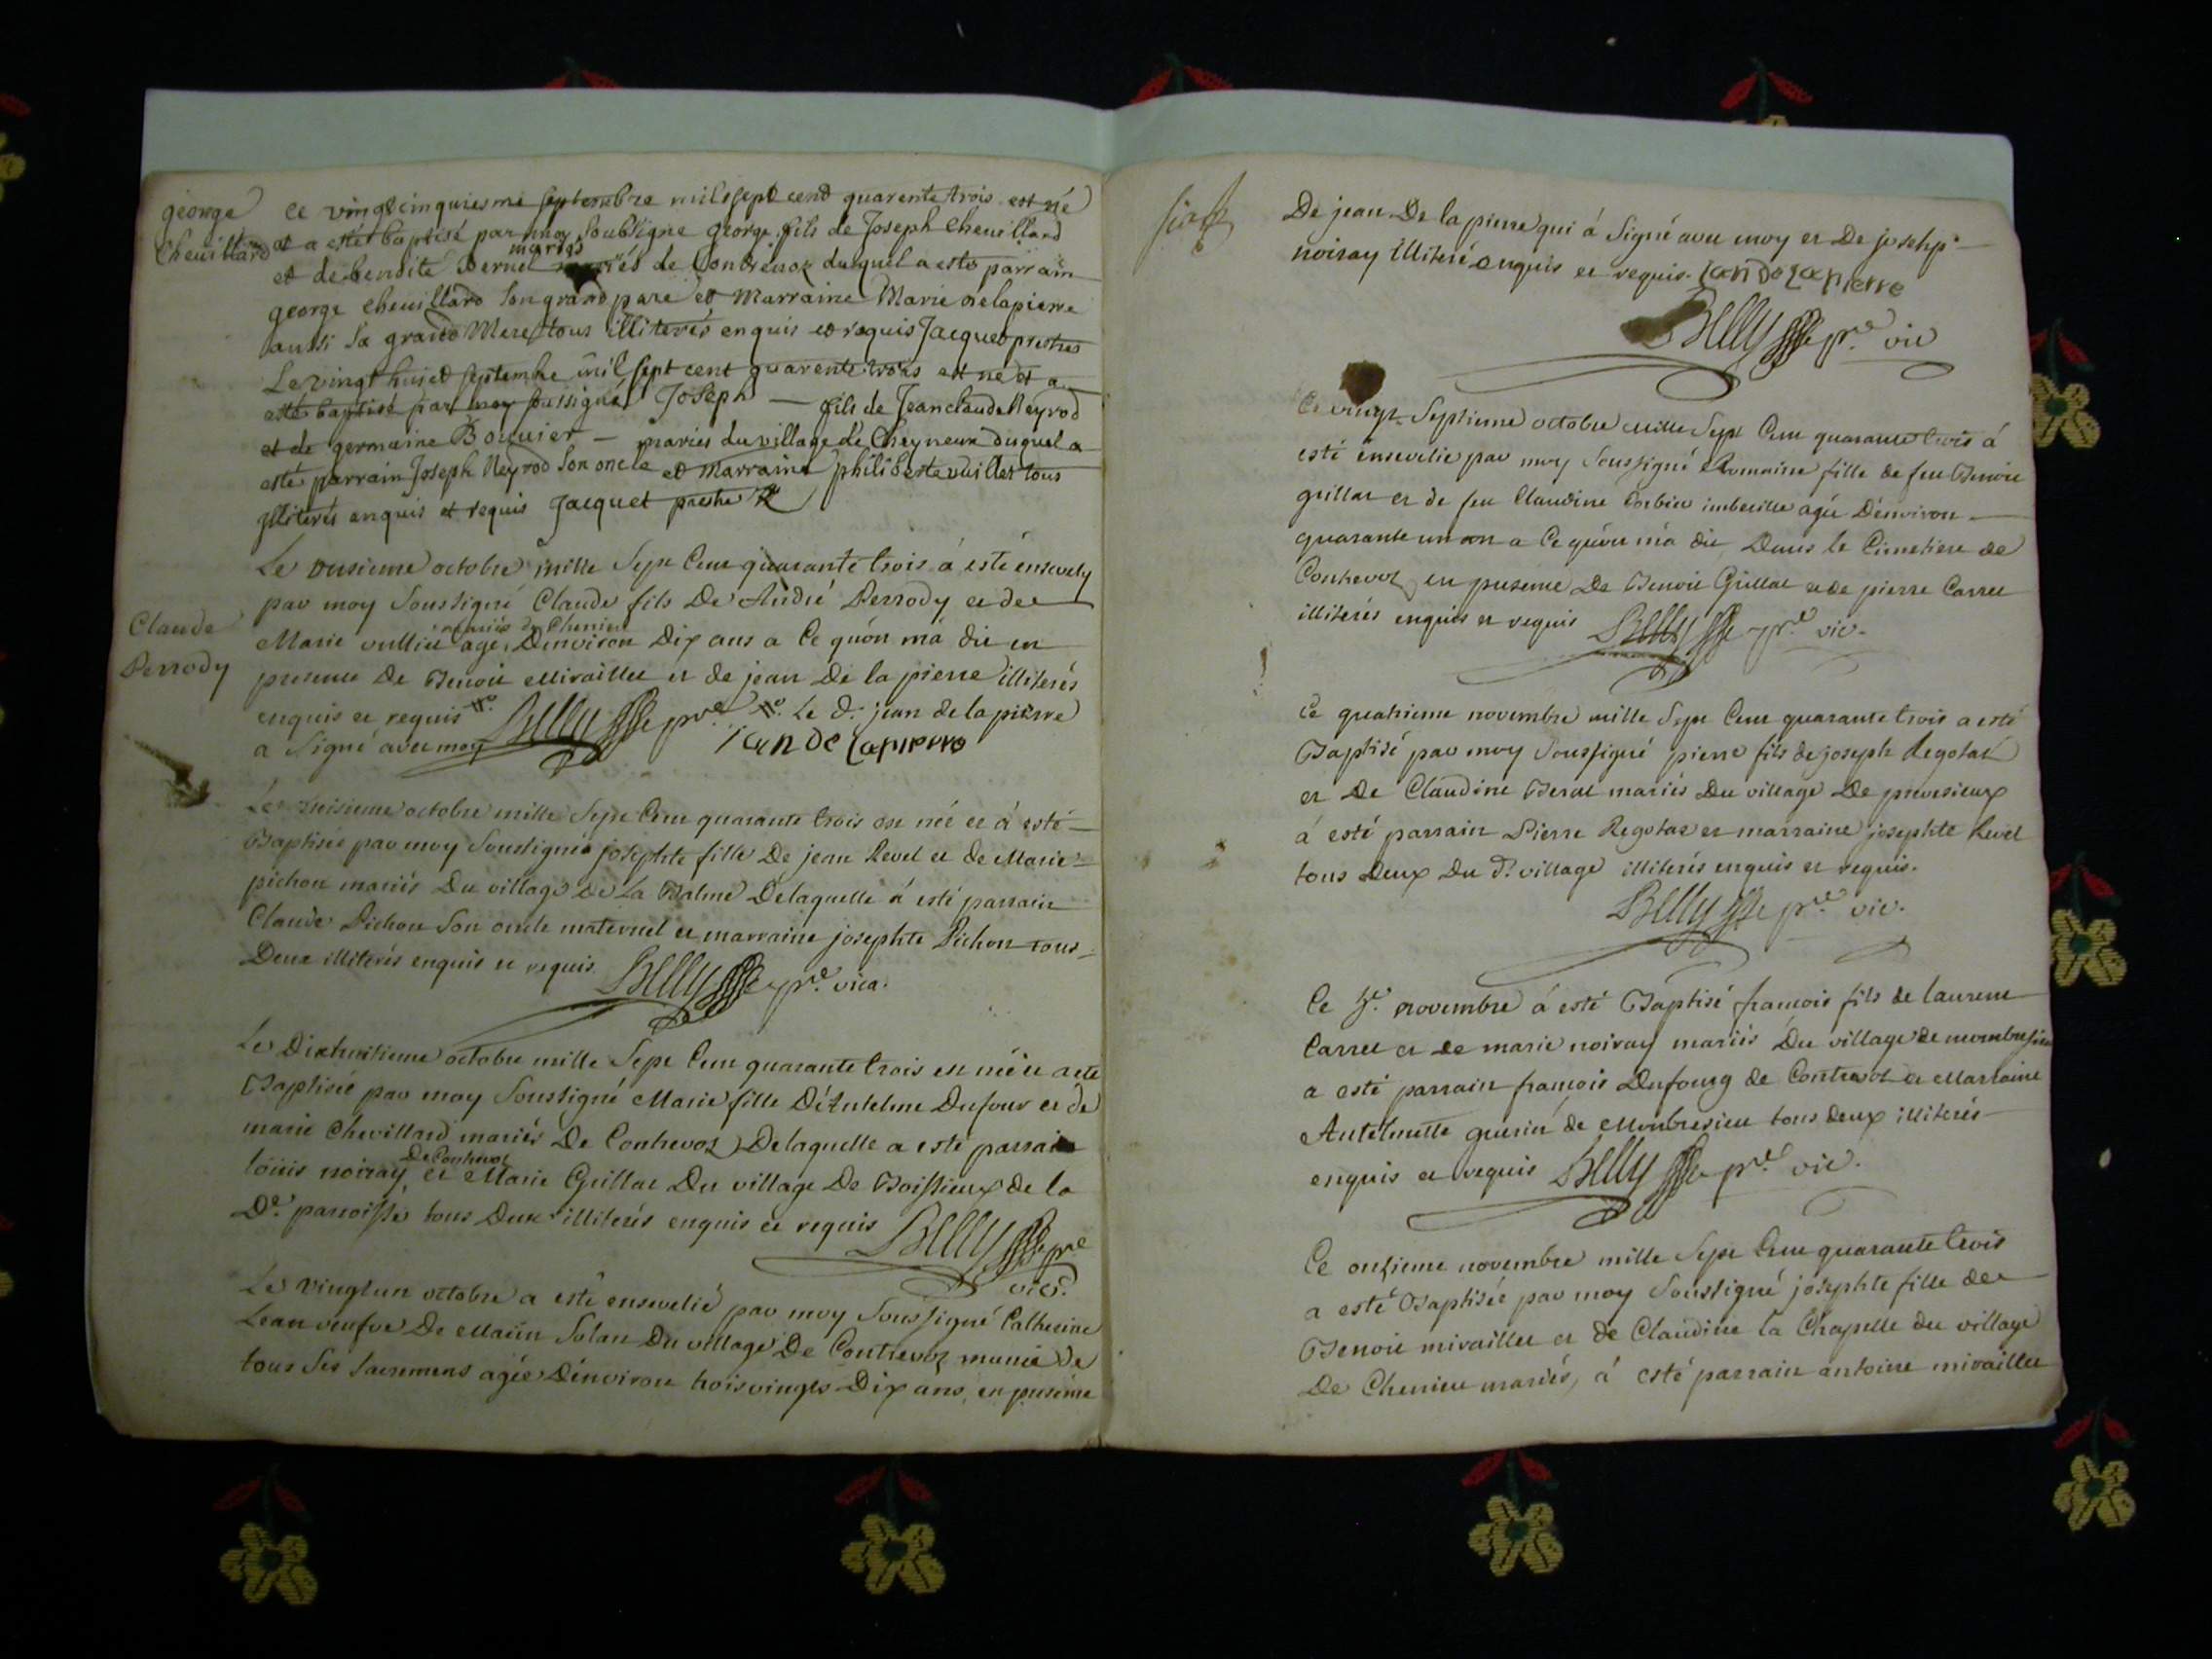 george
Cheuillard
ce vingtcinquiesme septembre mil sept cent quarente trois est né
et a esté baptisé par moy soubsigne george fils de Joseph Cheuillard
mariés
et de bendité Bernet de Contreuoz duquel a esté parrain
george cheuillard son grand pere et Marraine Marie delapierre
aussi sa grand Mere tous illiterés enquis et requis Jacquet prestre
Le vingt huict septembre mil sept cent quarente trois est né et a
esté baptisé par moy soussigné Joseph — fils de Jean claude Neyrod
et de germaine Bouuier — mariés du village de Cheyneux duquel a
esté parrain Joseph Neyrod son oncle et marraine philiberte vuillet tous
illiterés enquis et requis Jacquet prestre
Le onsieme octobre mille Sept Cent quarante trois á esté ensevely
Claude
Perrody
par moy Soussigné Claude fils De André Perrody et de
mariés de Chenieu
Marie vullien agé, D'environ Dix ans a Ce qu'on m'a dit en
presence De Benoit Miraillet et de jean De la pierre illiterés
enquis et requis Belly pre. Le d. jean de la pierre
a Signé avec moy Ian de lapierre
Le treisieme octobre mille Sept Cent quarante trois est née et á esté
Baptisée par moy Soussigné josephte fille De jean Revel et de Marie
pichon mariés Du village de La Balme De laquelle á esté parrain
Claude Pichon Son oncle maternel et marraine josephte Pichon tous
Deux illiterés enquis et requis. Belly pre. vica.
Le Dixhuitieme octobre mille Sept Cent quarante trois est née et a esté
Baptisée par moy Soussigné Marie fille D'Antelme Dufour et de
marie Chevillard mariés De Contrevoz De laquelle a esté parrain
De Contrevoz
loüis noiray et Marie Grillat Du village De Boissieux de la
De. parroisse tous Deux illiterés enquis et requis Belly pre
vic.
Le vingtun octobre a esté ensevelie par moy Soussigné Catherine
Lean veufve De Solan Du village De Contrevoz munie de
tous Ses Sacremens agée D'environ trois vingts Dix ans, en presence
De jean De la pierre qui á Signé avec moy et De josehp
noiray illiteré enquis et requis. Ian de la pierre
Belly pre. vic
Ce vingt Septieme octobre mille Sept Cent quarante trois á
esté ensevelie par moy Soussigné Romaine fille de feu Benoit
grillat et de feu Claudine Corbin imbecille agée D'environ
quarante un an a Ce qu'on m'a dit Dans le Cimetiere de
Contrevoz en presence De Benoit Grillat et de pierre Carrel
illiterés enquis et requis Belly pre. vic.
Ce quatrieme novembre mille Sept Cent quarante trois a esté
Baptisé par moy Soussigné pierre fils de joseph Regotat
et De Claudine Beral mariés Du village De premesieux
á esté parrain Pierre Regotat et marraine josephte Revel
tous Deux Du d. village illiterés enquis et requis.
Belly pre. vic.
Ce novembre á esté Baptisé francois fils de laurent
Carrel et de marie noiray mariés Du village de
a esté parrain francois Dufourg de Contrevoz et Marraine
Antelmette guerin de Montbresieu tous deux illiterés
enquis et requis Belly pre. vic.
Ce onzieme novembre mille Sept Cent quarante trois
a esté Baptisée par moy Soussigné josephte fille de
Benoit miraillet et de Claudine la Chapelle du village
De Chenieu mariés, á esté parrain antoine miraillet